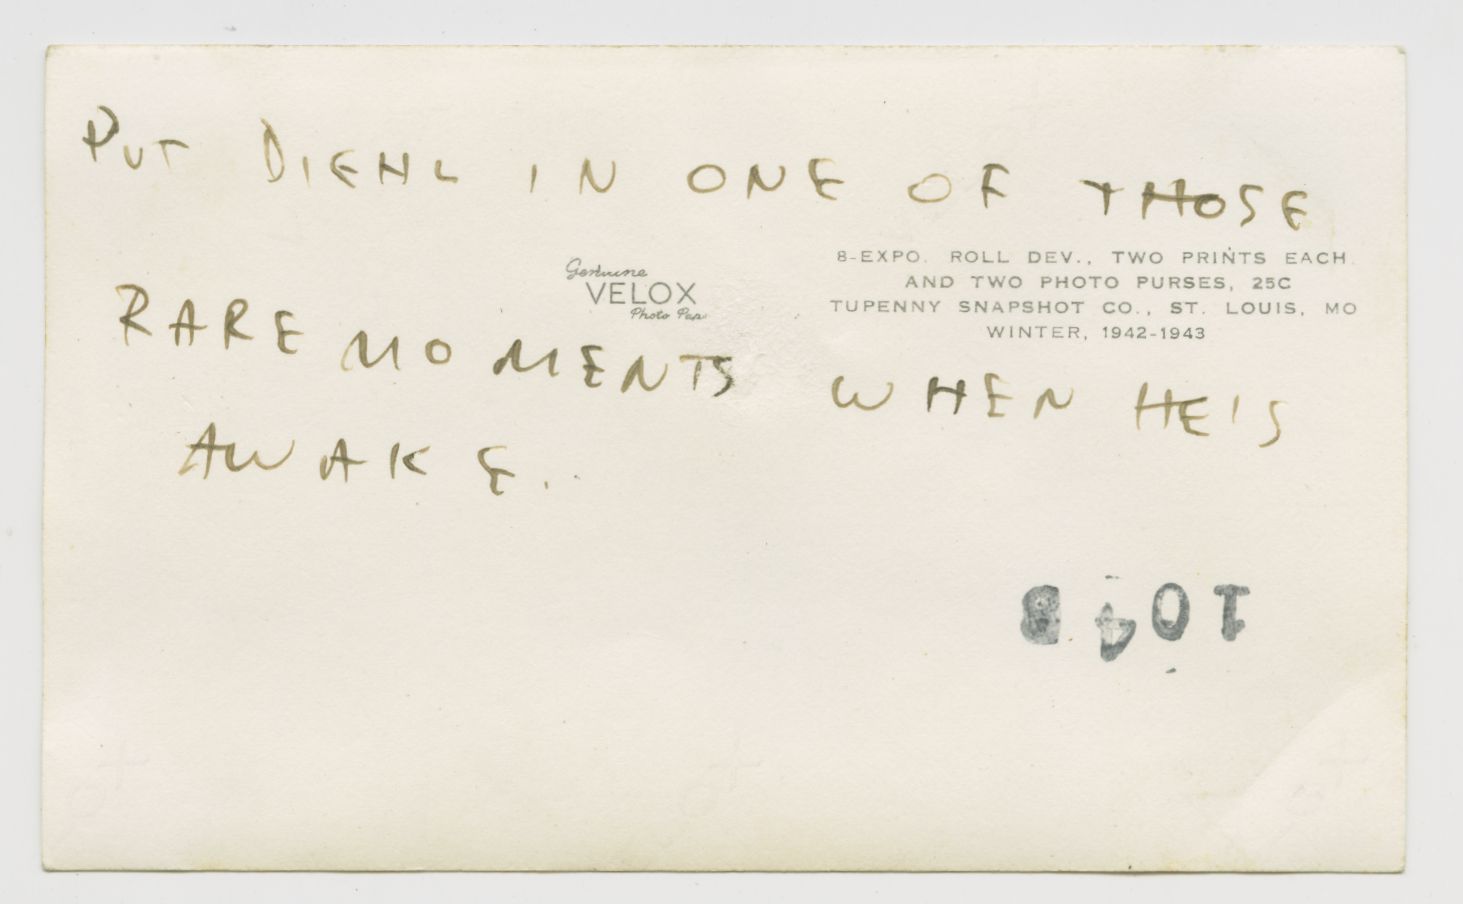 PUT DIEHL IN ONE OF THOSE
Genuine
VELOX
Photo Pap
8-EXPO. ROLL DEV., TWO PRINTS EACH.
AND TWO PHOTO PURSES, 25C
TUPENNY SNAPSHOT CO., ST. LOUIS, MO
WINTER, 1942-1943
RARE MOMENTS WHEN HE IS
AWAKE.